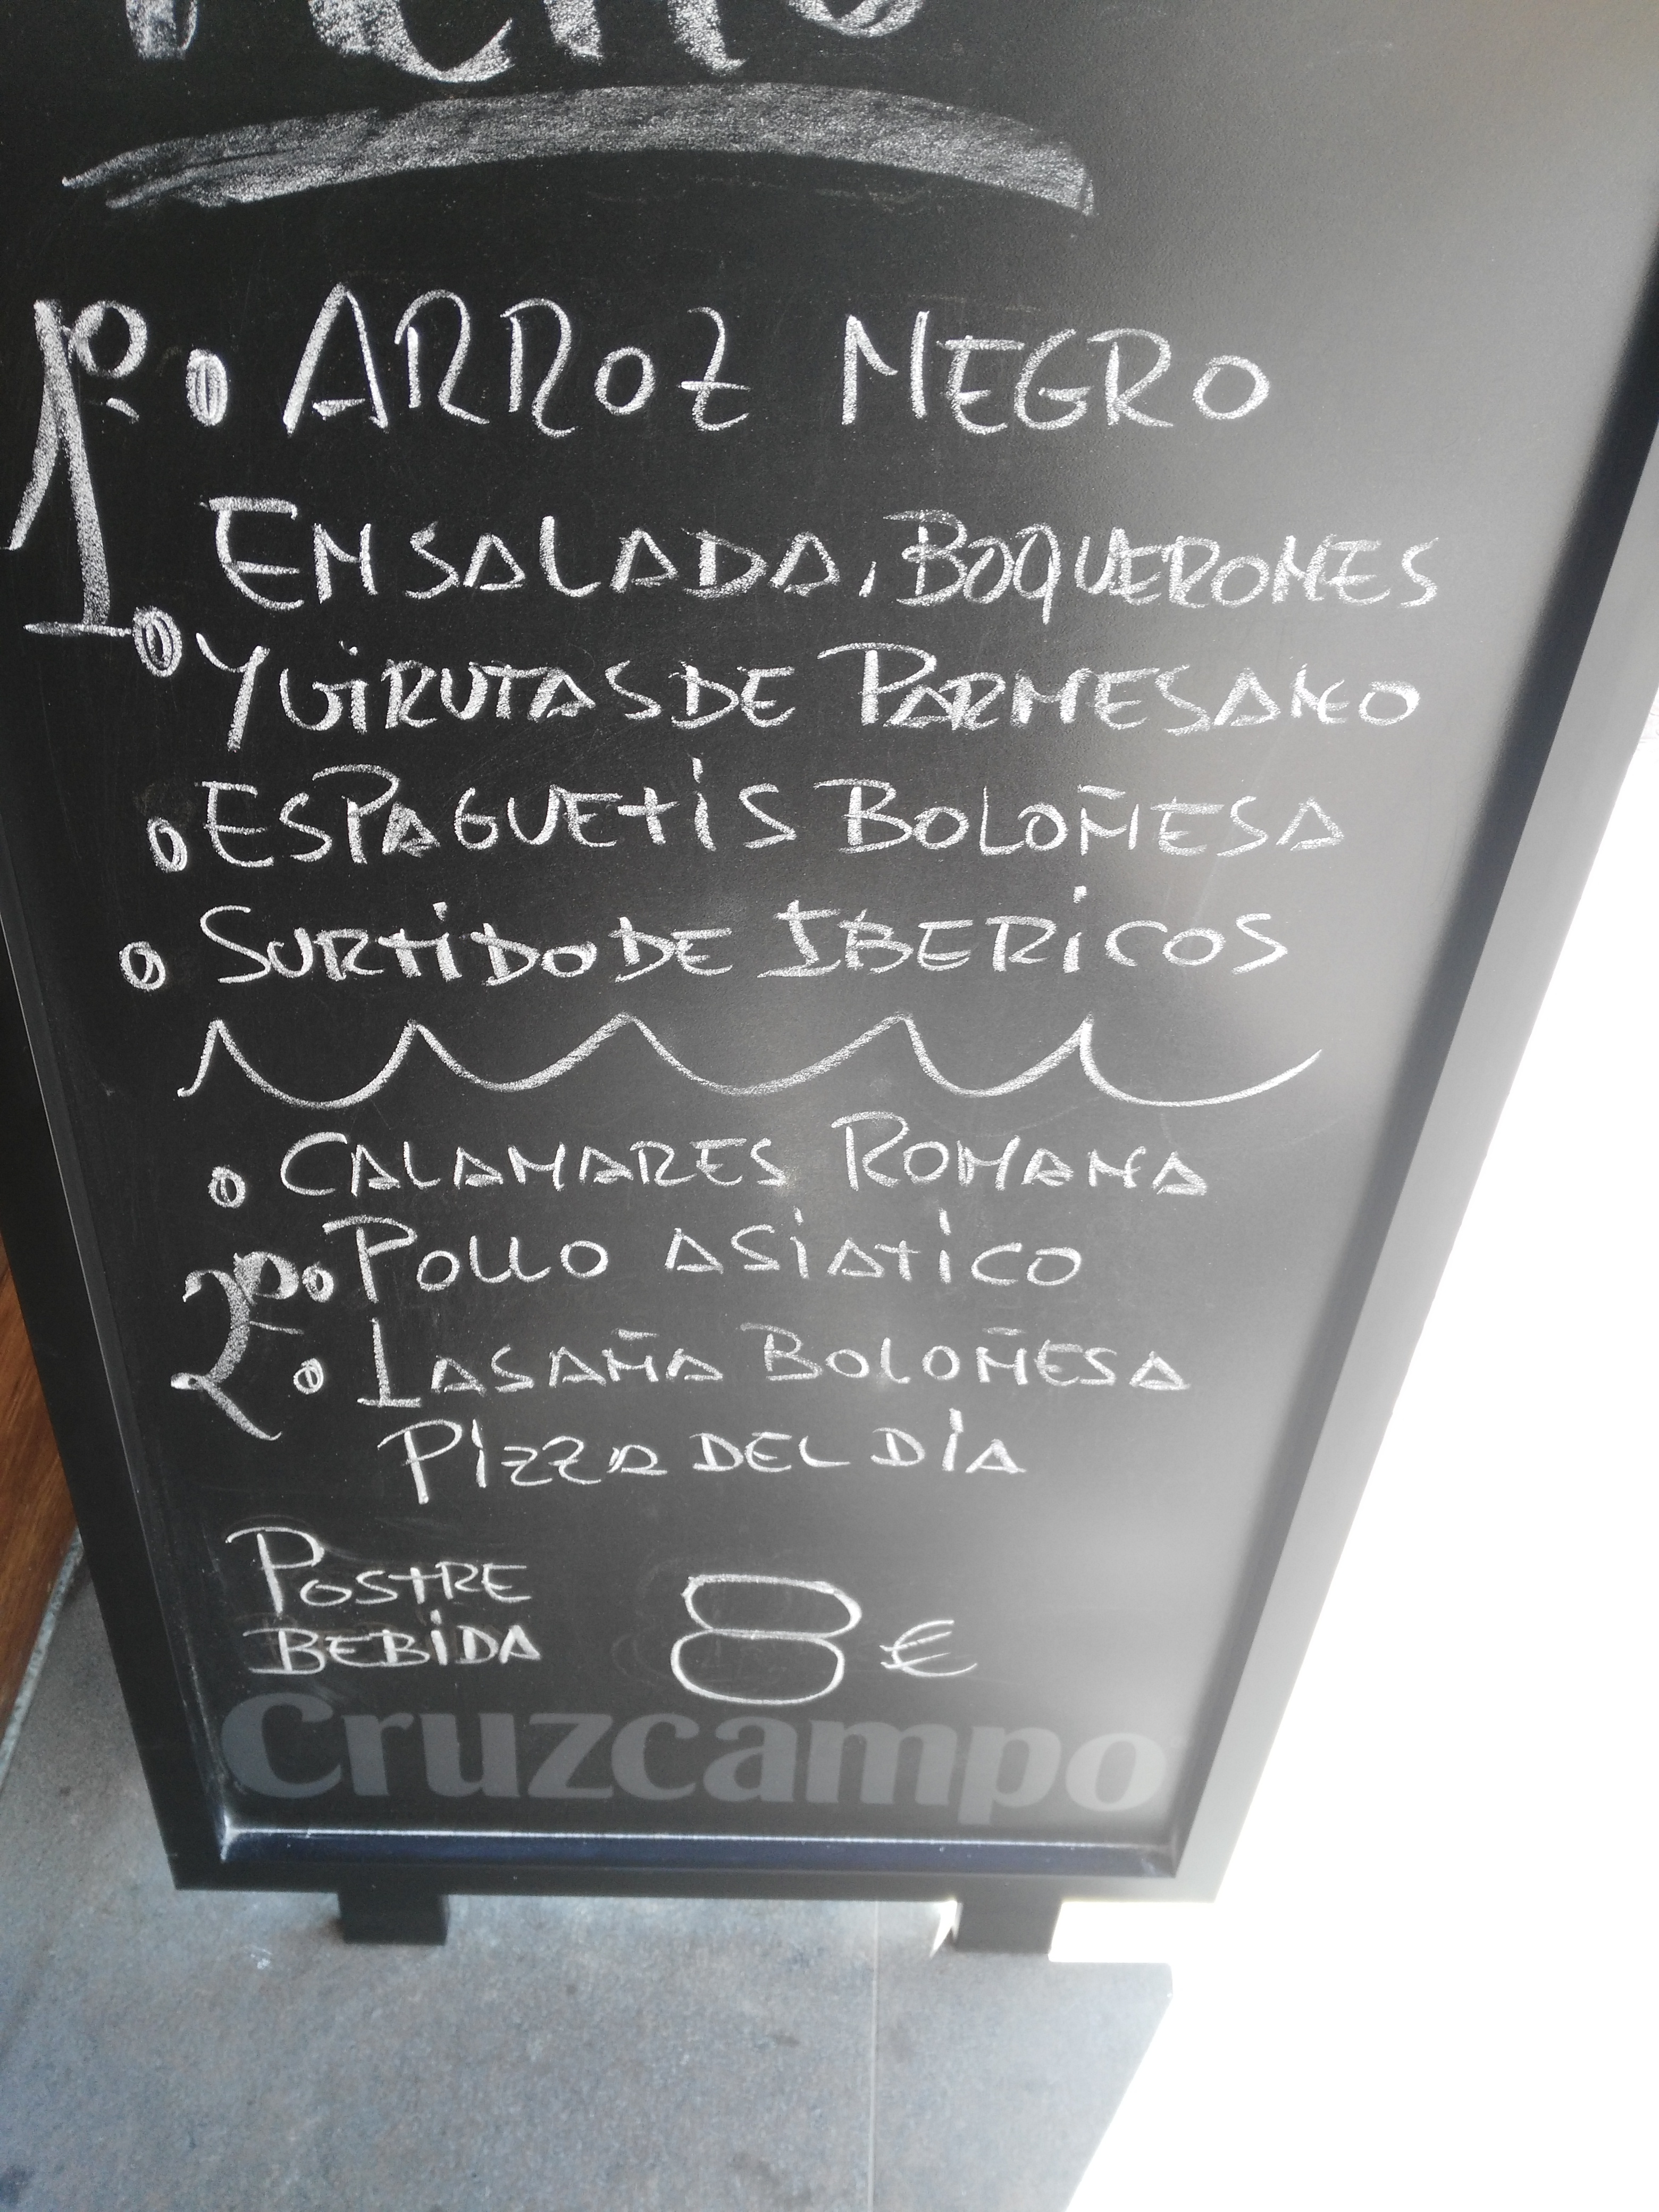 Menú
1º
• ARROZ NEGRO
ENSALADA, BOQUERONES
• Y VIRUTAS DE PARMESANO
• ESPAGUETIS BOLOÑESA
• SURTIDO DE IBERICOS
• CALAMARES ROMANA
2º
• POLLO ASIATICO
• LASAÑA BOLOÑESA
PIZZA DEL DIA
POSTRE
BEBIDA 8 €
Cruzcampo